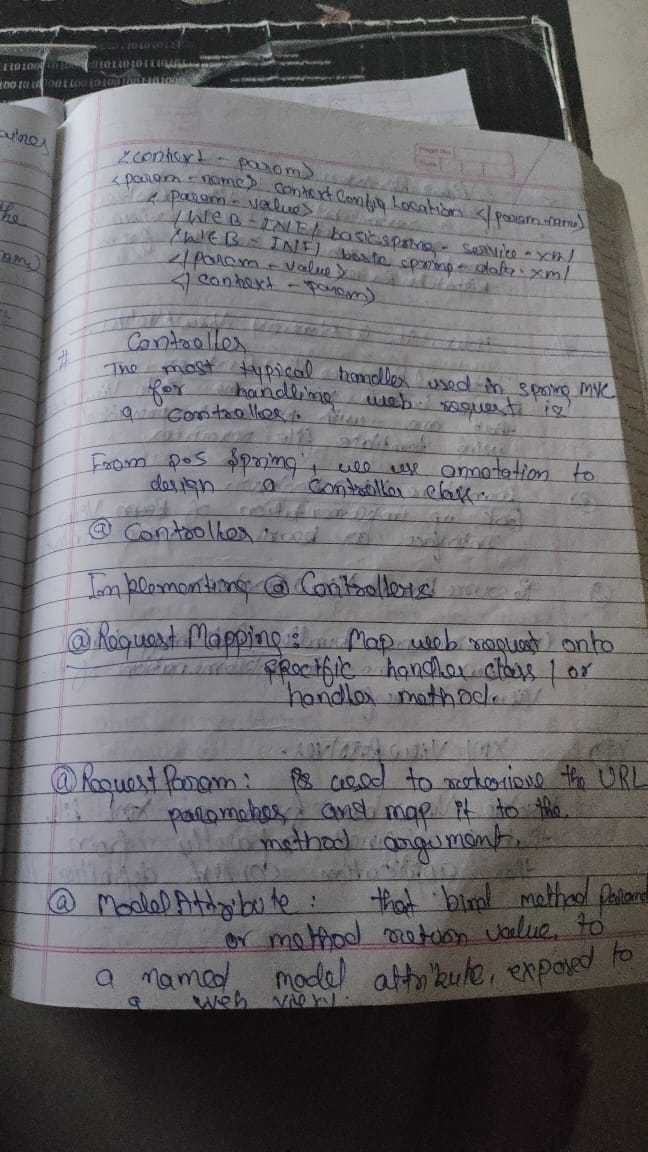 <context-param>
<param-name> contextConfig Location </param-name>
<param-value>
/WEB-INF/ basicspring-service.xml
/WEB-INF/ basic spring-data.xml
</param-value>
</context-param>
# Controller
The most typical handler used in spring MVC
for handling web request is
a controller.
From Spring, we use annotation to
design a controller class.
@ Controller:
Implementing @ Controllers
@ Request Mapping: Map web request onto
specific handler class / or
handler method.
@ Request Param: is used to retrieve the URL
parameter and map it to the
method argument.
@ Model Attribute: that bind method Param
or method return value, to
a named model attribute, exposed to
a web view.
the